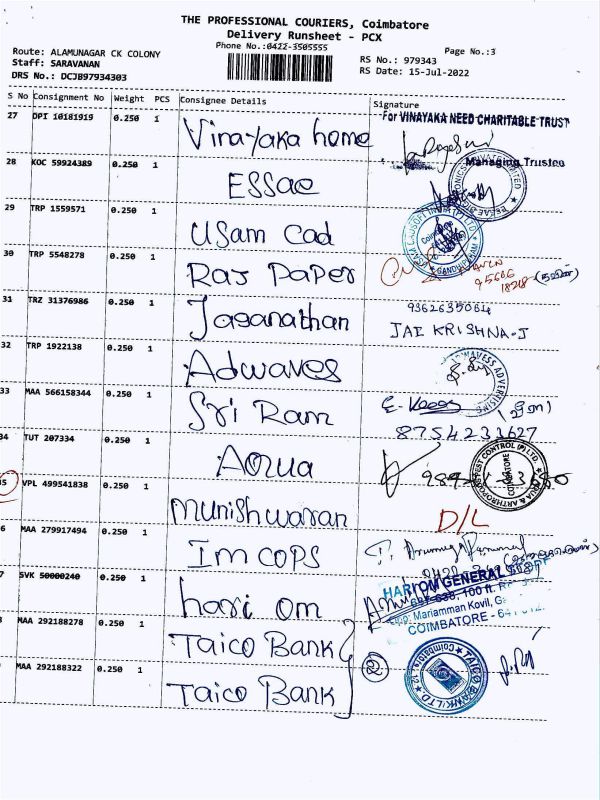 THE PROFESSIONAL COURIERS, Coimbatore
Delivery Runsheet - PCX
Phone No.:0422-3505555
Page No.:3
Route: ALAMUNAGAR CK COLONY
RS No. : 979343
Staff: SARAVANAN
RS Date: 15-Jul-2022
DRS No.: DCJB97934303
S No Consignment No Weight PCS Consignee Details Signature
27 DPI 10181919 0.250 1 Vinayaka home For VINAYAKA NEED CHARITABLE TRUST
Managing Trustee
28 KOC 59924389 0.250 1 ESSae
29 TRP 1559571 0.250 1 USam Cad
30 TRP 5548278 0.250 1 Raj Paper 95666 18218
31 TRZ 31376986 0.250 1 Jaganathan 9362635064
JAI KRISHNA-J
32 TRP 1922138 0.250 1 Adwaves
33 MAA 566158344 0.250 1 Sri Ram
8754233627
34 TUT 207334 0.250 1 Aqua
35 VPL 499541838 0.250 1 Munishwaran D/L
6 MAA 279917494 0.250 1 Imcops
7 SVK 50000240 0.250 1 hari om HARI OM GENERAL STAFF
Opp: Mariamman Kovil,
COIMBATORE - 641012.
MAA 292188278 0.250 1 Taico Bank
2
TAICO BANK LTD
Coimbatore-12
MAA 292188322 0.250 1 Taico Bank